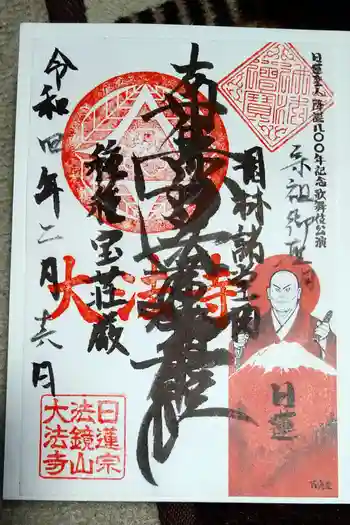 日蓮聖人 降誕八〇〇年記念歌舞伎公演
宗祖御
園林諸堂閣
南無妙法蓮華経
種種宝荘厳
大法寺
令和四年二月十六日
日蓮宗
法鏡山
大法寺
日蓮